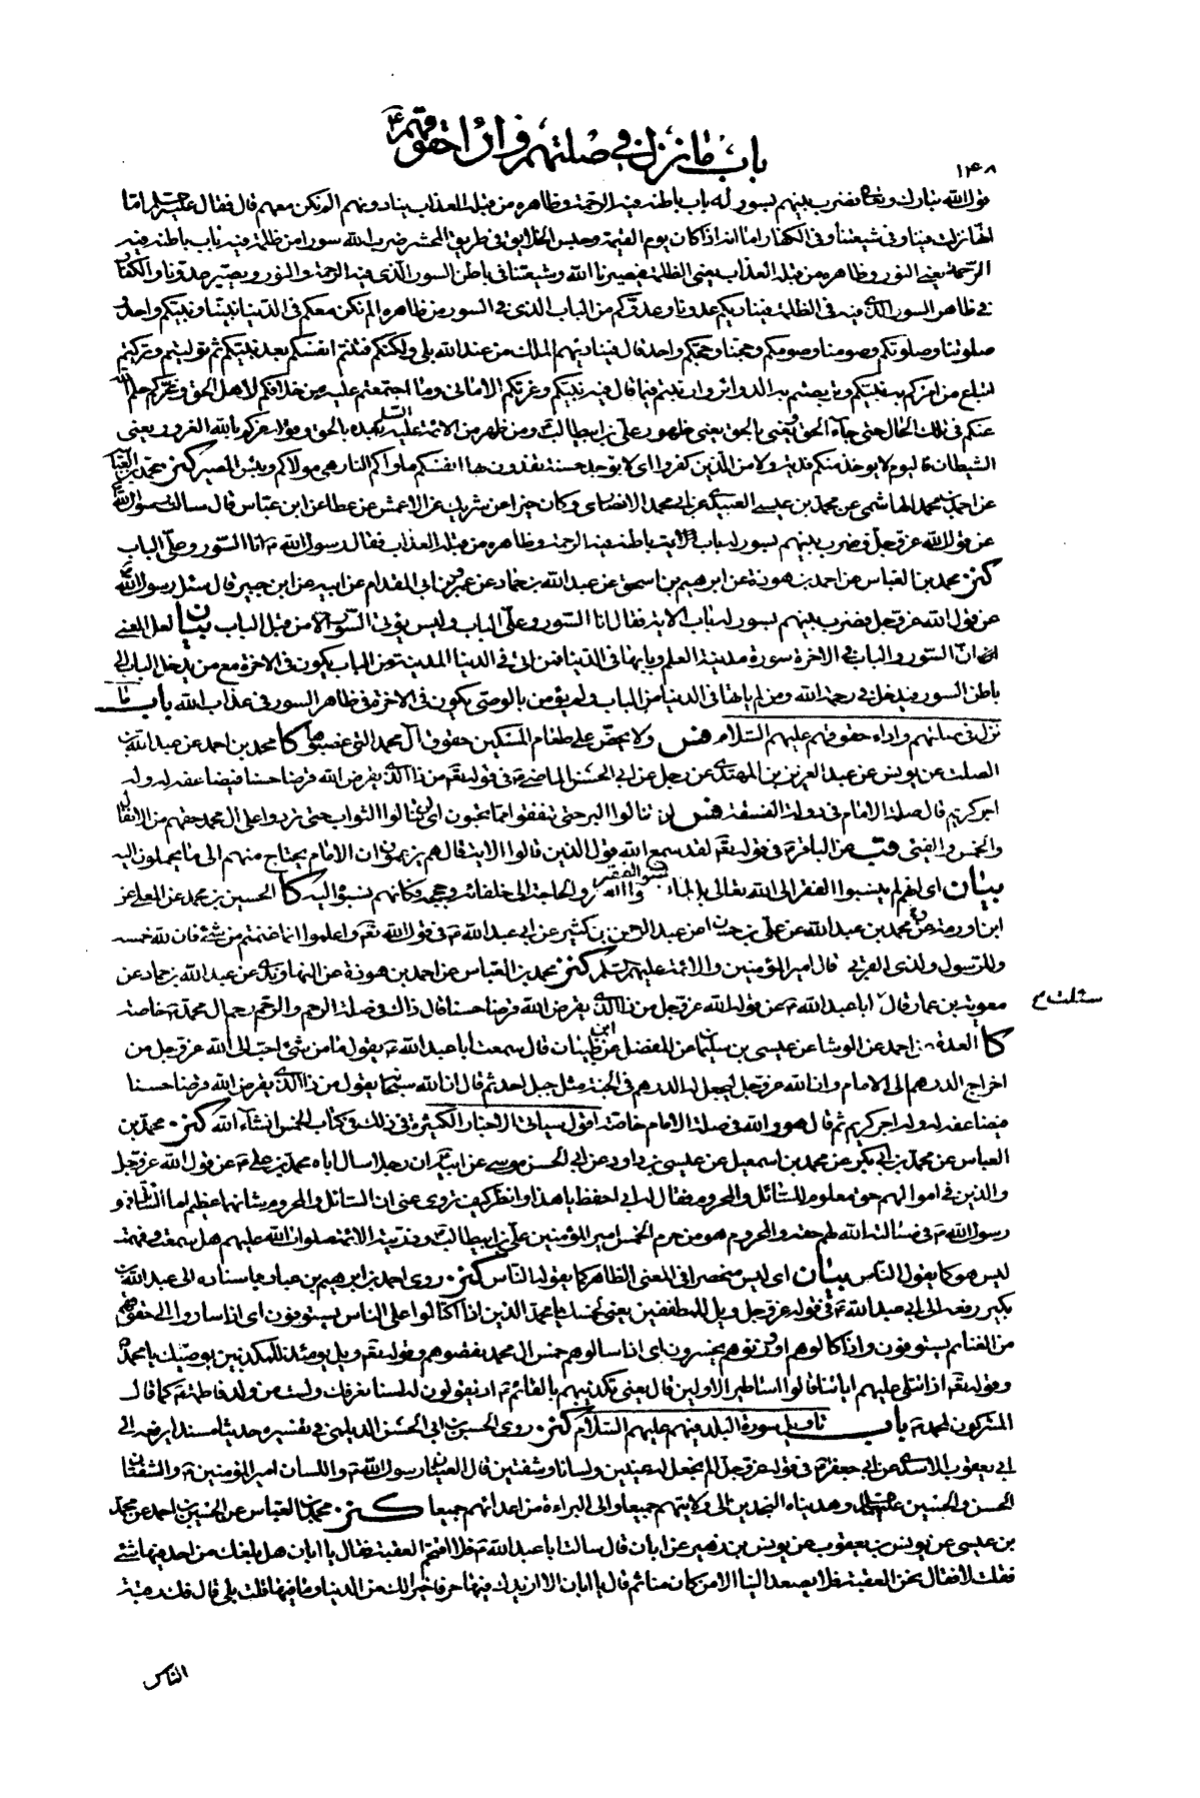 باب ما نزل في صلتهم واداء حقوقهم ع
١٤٨
قول الله تبارك وتعالى فضرب بينهم بسور له باب باطنه فيه الرحمة وظاهره من قبله العذاب ينادونهم الم نكن معكم قال فقال عليه السلم اما
انها نزلت فينا وفي شيعتنا وفي الكفار اما انه اذا كان يوم القيمة وحبس الخلايق في طريق المحشر ضرب الله سورا من ظلمة فيه باب باطنه فيه
الرحمة يعني النور وظاهره من قبله العذاب يعني الظلمة فيصيرنا الله وشيعتنا في باطن السور الذي فيه الرحمة والنور ويصير عدونا والكفار
في ظاهر السور الذي فيه الظلمة فيناديكم عدونا وعدوكم من الباب الذي في السور من ظاهره الم نكن معكم في الدنيا نبينا ونبيكم واحد و
صلوتنا وصلوتكم وصومنا وصومكم وحجنا وحجكم واحد قال فيناديهم الملك من عند الله بلى ولكنكم فتنتم انفسكم بعد نبيكم ثم توليتم وتركتم
اتباع من امركم به نبيكم وتربصتم به الدوائر وارتبتم فيما قال فيه نبيكم وغرتكم الاماني وما اجتمعتم عليه من خلافكم لاهل الحق وغركم حلم الله
عنكم في تلك الحال حتى جاء الحق ويعني بالحق يعني ظهور علي بن ابيطالب ومن ظهر من الائمة عليه السلم بعده بالحق وقوله وغركم بالله الغرور يعني
الشيطان فاليوم لا يوخذ منكم فدية ولا من الذين كفروا اي لا يوجد حسنة تفدون بها انفسكم ماواكم النار هي مولاكم وبئس المصير كنز محمد بن العباس
عن احمد بن محمد الهاشمي عن محمد بن عيسى العبيدي عن ابي محمد الانصاري وكان خيرا عن شريك عن الاعمش عن عطا عن ابن عباس قال سالت رسول الله
عن قول الله عز وجل فضرب بينهم بسور له باب الاية باطنه فيه الرحمة وظاهره من قبله العذاب فقال رسول الله ص انا السور وعلي الباب
كنز محمد بن العباس عن احمد بن هوذة عن ابرهيم بن اسحق عن عبد الله بن حماد عن عمرو بن ابي المقدام عن ابيه عن ابن جبير قال سئل رسول الله ص
عن قول الله عز وجل فضرب بينهم بسور له باب الاية فقال انا السور وعلي الباب وليس يؤتى السور الا من قبل الباب بيان لعل المعنى
ان السور والباب في الاخرة سورة مدينة العلم وبابها في الدنيا فمن اتى في الدنيا المدينة من الباب يكون في الاخرة مع من يدخل الباب الى
باطن السور فيدخل في رحمة الله ومن لم ياتها في الدنيا من الباب ولم يؤمن بالوصي يكون في الاخرة في ظاهر السور في عذاب الله باب ما
نزل في صلتهم واداء حقوقهم عليهم السلام فس ولا يحض على طعام المسكين حقوق آل محمد التي غصبوها كا محمد بن احمد عن عبد الله بن
الصلت عن يونس عن عبد العزيز بن المهتدي عن رجل عن ابي الحسن الماضي ع في قوله تع من ذا الذي يقرض الله قرضا حسنا فيضاعفه له وله
اجر كريم قال صلة الامام في دولة الفسقة فس لن تنالوا البر حتى تنفقوا مما تحبون اي لن تنالوا الثواب حتى تردوا على ال محمد حقهم من الانفال
والخمس والفيئ قب عن الباقر ع في قوله تع لقد سمع الله قول الذين قالوا الاية قال هم يزعمون ان الامام يحتاج منهم الى ما يحملون اليه
بيان اي انهم لم ينسبوا الفقر الى الله تعالى بل لما نسبوا الفقر والحاجة الى خلفائه وحججه فكانهم نسبوه اليه كا الحسين بن محمد عن المعلى عن
ابن اورمة ومحمد بن عبد الله عن علي بن حسان عن عبد الرحمن بن كثير عن ابي عبد الله ع في قول الله تع واعلموا انما غنمتم من شئ فان لله خمسه
وللرسول ولذي القربى قال امير المؤمنين والائمة عليهم السلم كنز محمد بن العباس عن احمد بن هوذة عن النهاوندي عن عبد الله بن حماد عن
معوية بن عمار قال ابا عبد الله ع عن قول الله عز وجل من ذا الذي يقرض الله قرضا حسنا قال ذاك في صلة الرحم والرحم رحم ال محمد ص خاصة
سئلت ع
كا العدة عن احمد عن الوشا عن عيسى بن سليمان عن المفضل عن ابن ظبيان قال سمعت ابا عبد الله ع يقول ما من شئ احب الى الله عز وجل من
اخراج الدرهم الى الامام وان الله عز وجل ليجعل له الدرهم في الجنة مثل جبل احد ثم قال ان الله سبحانه يقول من ذا الذي يقرض الله قرضا حسنا
فيضاعفه له وله اجر كريم ثم قال هو والله في صلة الامام خاصة اقول سياتي الاخبار الكثيرة في ذلك في كتاب الخمس انشاء الله كنز محمد بن
العباس عن محمد بن ابي بكر عن محمد بن اسمعيل عن عيسى بن داود عن ابي الحسن موسى عن ابيه ان رجلا سال اباه محمد بن علي ع عن قول الله عز وجل
والذين في اموالهم حق معلوم للسائل والمحروم فقال له ابي احفظ يا هذا وانظر كيف تروي عني ان السائل والمحروم شانهما عظيم اما السائل فهو
رسول الله ص في مسالته الله لهم حقه والمحروم هو من حرم الخمس امير المؤمنين علي بن ابيطالب وذريته الائمة صلوات الله عليهم هل سمعت وفهمت
ليس هو كما يقول الناس بيان اي ليس منحصرا في المعنى الظاهر كما يقوله الناس كنز روى احمد بن ابرهيم بن عباد باسناده الى عبد الله بن
بكير رفعه الى ابي عبد الله ع في قوله عز وجل ويل للمطففين يعني لخمسك يا محمد الذين اذا اكتالوا على الناس يستوفون اي اذا ساروا الى حقوقهم
من الغنايم يستوفون واذا كالوهم او وزنوهم يخسرون اي اذا سالوهم خمس ال محمد نقصوهم وقوله تع ويل يومئذ للمكذبين بوصيك يا محمد
وقوله تع اذا تتلى عليهم اياتنا قالوا اساطير الاولين قال يعني تكذيبهم بالقائم ع اذ يقولون له لسنا نعرفك ولست من ولد فاطمة ع كما قال
المشركون لمحمد ص باب تاويل سورة البلد فيهم عليهم السلام كنز روى الحسين بن ابي الحسن الديلمي في تفسيره حديثا مسندا يرفعه الى
ابي يعقوب الاسدي عن ابي جعفر ع في قوله عز وجل الم نجعل له عينين ولسانا وشفتين قال العينان رسول الله ص واللسان امير المؤمنين ع والشفتان
الحسن والحسين عليهما السلام وهديناه النجدين الى ولايتهم جميعا والى البراءة من اعدائهم جميعا كنز محمد بن العباس عن الحسين بن احمد عن محمد
بن عيسى عن يونس بن يعقوب عن يونس بن زهير عن ابان قال سالت ابا عبد الله ع فلا اقتحم العقبة فقال يا ابان هل بلغك من احد فيها شئ
فقلت لا فقال نحن العقبة فلا يصعد الينا الا من كان منا ثم قال يا ابان الا ازيدك فيها حرفا خير لك من الدنيا وما فيها قلت بلى قال فك رقبة
الناس